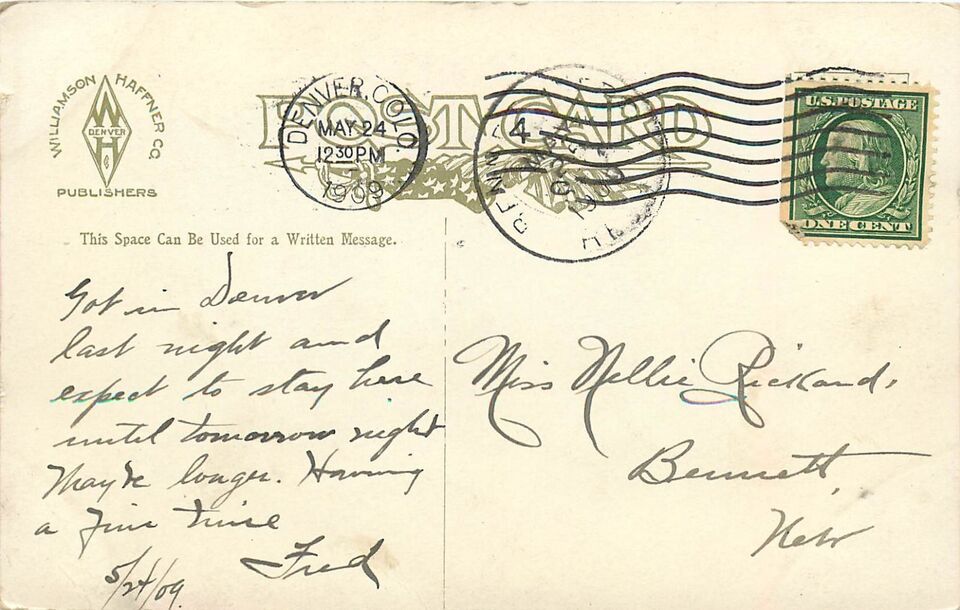 WILLIAMSON HAFFNER CO.
DENVER
PUBLISHERS
POST CARD
DENVER, COLO.
MAY 24
12 30 PM
1909
4
U.S. POSTAGE
ONE CENT
This Space Can Be Used for a Written Message.
Got in Denver
last night and
expect to stay here
until tomorrow night
Maybe longer. Having
a fine time
Fred
5/24/09
Miss Nellie Rickard.
Bennett,
Nebr